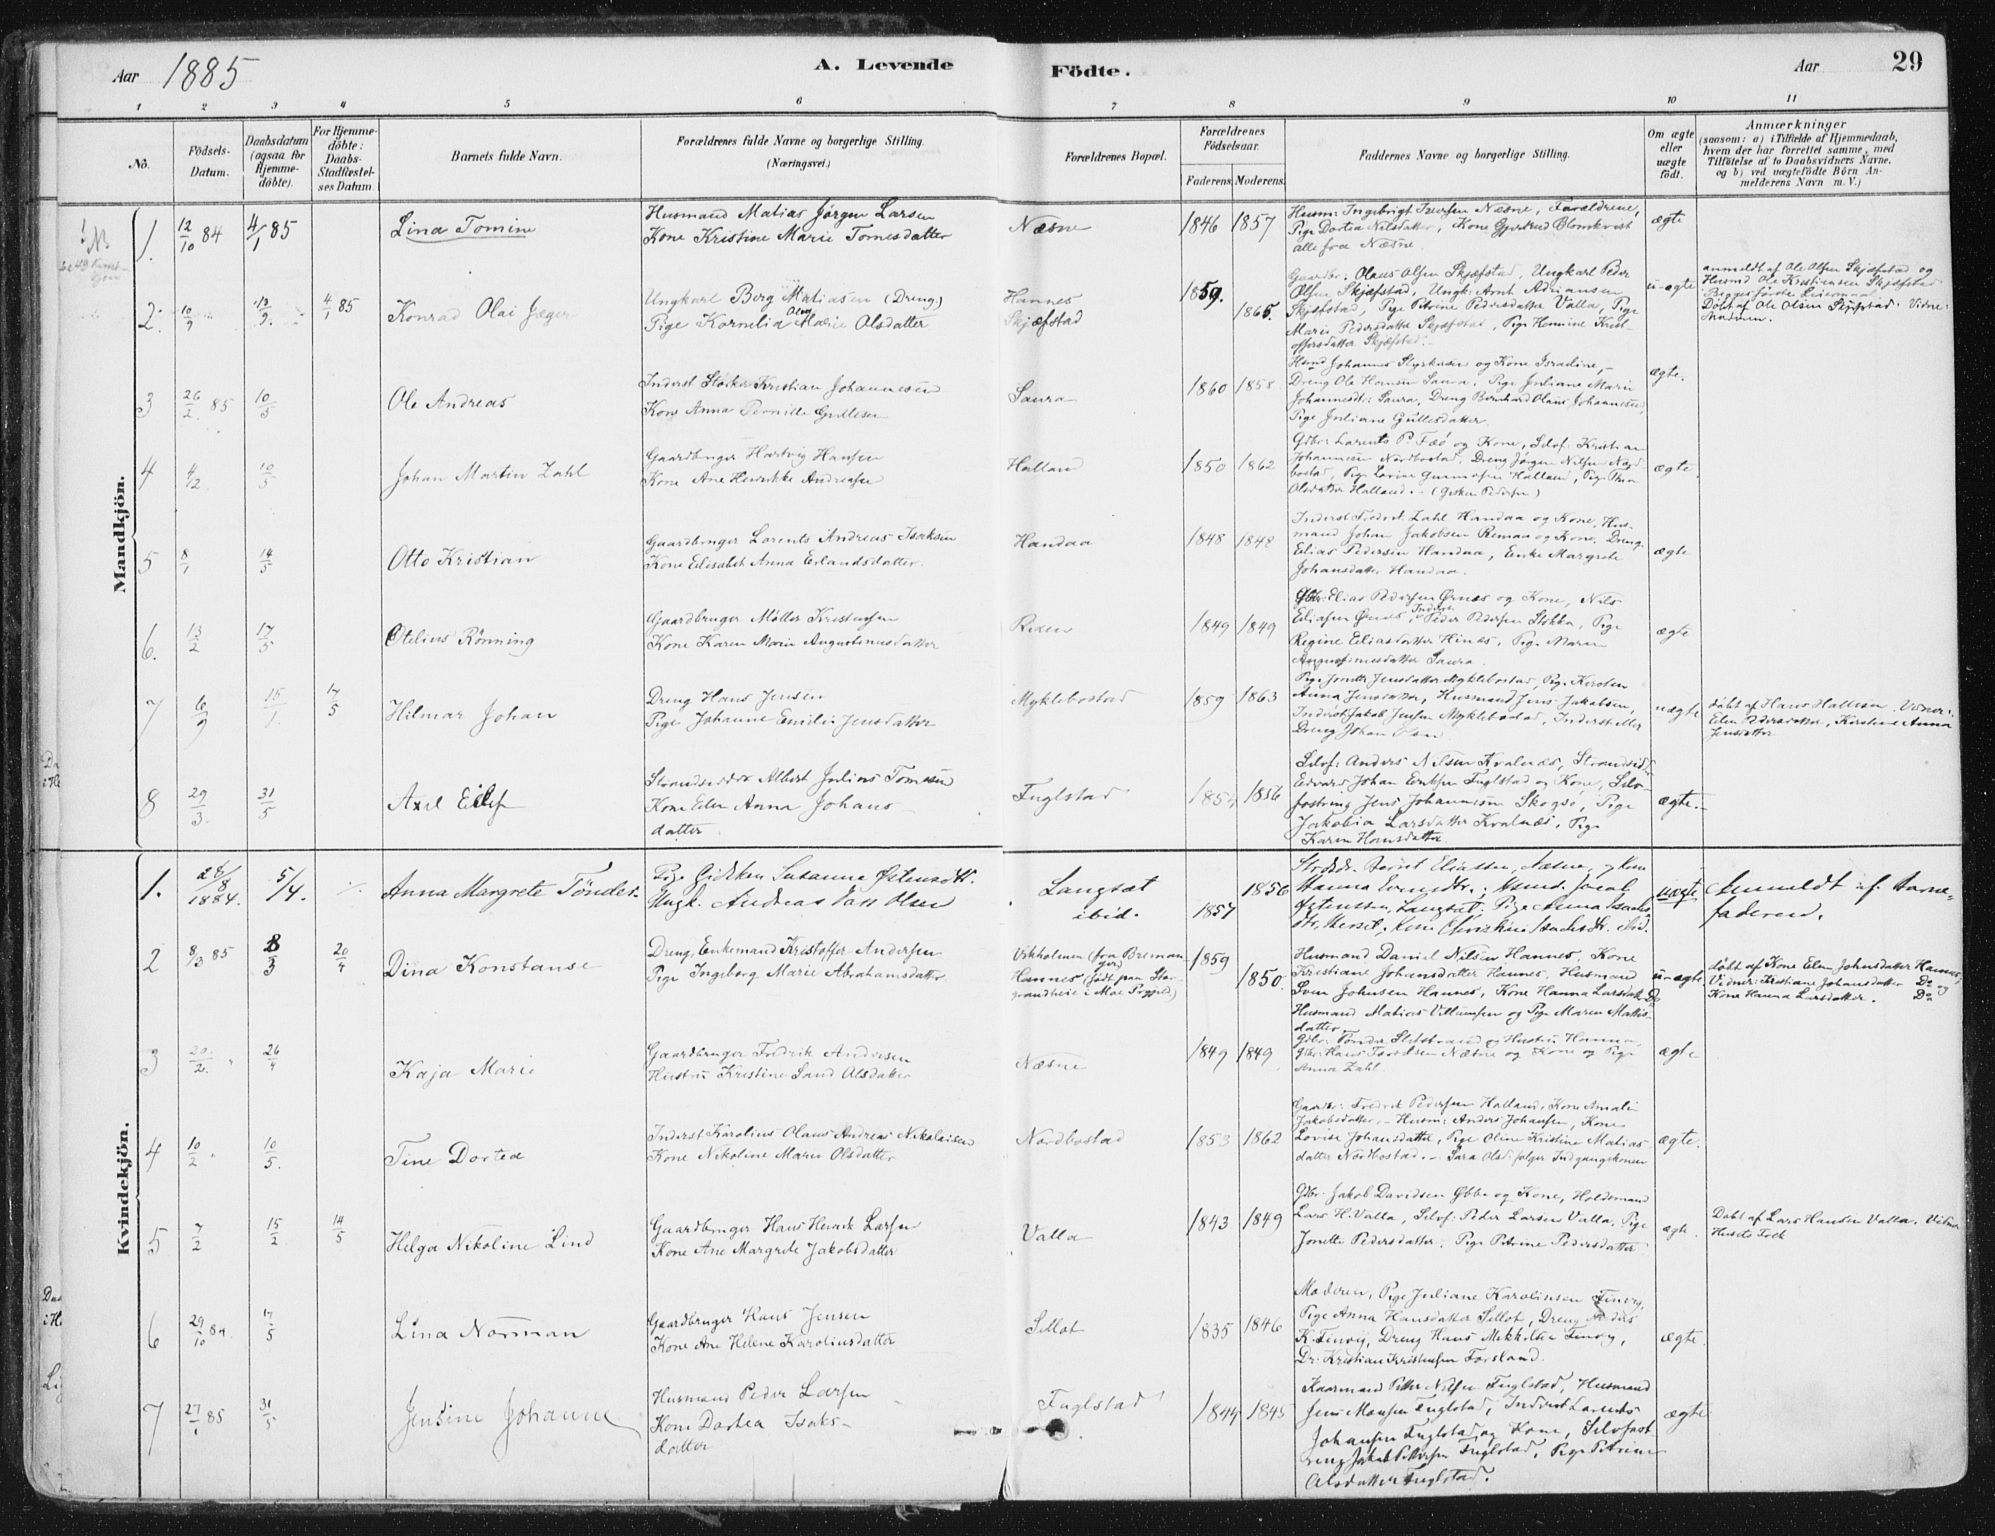 Aar 1885 A. Levende Födte. Aar 29
1 2 3 4 5 6 7 8 9 10 11
Nö.
Födsels-
Datum.
Daabsdatum
(ogsaa for
Hjemme-
döbte).
For Hjemme-
döbte:
Daabs-
Stadfæstel-
ses Datum.
Barnets fulde Navn.
Forældrenes fulde Navne og borgerlige Stilling.
(Næringsvei.)
Forældrenes Bopæl.
Forældrenes
Födselsaar.
Faderens. Moderens.
Faddernes Navne og borgerlige Stilling.
Om ægte
eller
uægte
födt.
Anmærkninger
(saasom: a) i Tilfælde af Hjemmedaab,
hvem der har forrettet samme, med
Tilföielse af to Daabsvidners Navne.
og b) ved uægtefödte Börn An-
melderens Navn m. V.)
Mandkjön.
1. 12/10 84 4/1 85 Lina Tomine
Husmand Matias Jørgen Larsen
Kone Kristine Marie Tomesdatter
Næsne 1846 1857
Husm: Ingebrigt Iversen Næsne, Forældrene,
Pige Dortea Nilsdatter, Kone Gjertrud Blomkvist
alle fra Næsne.
ægte
2. 10/9 13/9 4/1 85 Konrad Olai Jæger
Ungkarl Berg Matiasen (Dreng)
Pige Kornelia Olava Marie Olsdatter
Hannes
Skjæfstad
1859. 1865.
Gaardbr: Olaus Olsen Skjæfstad, Ungkarl Peder
Olsen Skjæfstad, Ungk: Arnt Adriansen
Skjæfstad, Pige Petrine Pedersdatter Valla, Pige
Marie Pedersdatter Skjæfstad, Pige Hennine Krist-
offersdatter Skjæfstad.
u-ægte
anmeldt af Ole Olsen Skjæfstad og
Husmd Ole Kristiansen Skjæfstad
Døbt af Ole Olsen Skjæfstad. Vidne:
Madmor.
3 26/2 85 10/5 Ole Andreas
Inderst Kristian Johannesen
Kone Anna Pernille Gullesen
Saura 1860 1858
Husmd Johannes Styrkesen og Kone Isradine,
Dreng Ole Hansen Saura, Pige Juliane Marie
Johannesdt: Saura, Dreng Bernhard Olaus Johannesen,
Pige Juliane Gullesdatter.
ægte.
4 4/2. 10/5 Johan Martin Zahl
Gaardbruger Hartvig Hansen
Kone Ane Henrikke Andreasen
Halland 1850 1862
Gdbr: Larents P. Fæö og Kone, Selvf: Kristian
Johannesen Nordbostad, Dreng Jørgen Nilsen Nord-
bostad, Pige Lovise Halland, Pige
Olsdatter Halland. - (Gisken Pedersen)
ægte.
5 8/1 14/5 Otto Kristian
Gaardbruger Lorents Andreas Isaksen
Kone Elisabet Anna Erlandsdatter.
Handaa 1848 1848
Inderst Fredrik Zahl Handaa og Kone, Hus-
mand Johan Jakobsen Reman og Kone, Dreng
Elias Pedersen Handaa, Enke Margrete
Johansdatter Handaa.
ægte
6. 13/2 17/5 Otelius Rönning
Gaardbruger Møller Kristensen
Kone Karen Marie Augustinusdatter
1849 1849
Gdbr: Elias Pedersen Ørnes og Kone, Nils
Eliasen Ørnes, Inderst Peder Pedersen Stokka, Pige
Regine Eliasdatter Hines, Pige Maren
Augustinusdatter Saura.
ægte
7 6/9 15/1. 17/5 Hilmar Johan
Dreng Hans Jensen
Pige Johanne Emilie Jensdatter
Myklebostad 1859 1863
Pige Jonette Jensdatter Myklebostad, Pige Kirsten
Anna Jensdatter, Husmand Jens Jakobsen,
Inderst Jakob Jensen Myklebostad, Inderst eller
Dreng Johan Olsen
uægte
døbt af Hans Hallesen. Vidner:
Elen Pedersdatter, Kirstine Anna
Jensdatter
8 29/3. 31/5 Axel Eilif
Strandsidder Albert Julius Tomesen
Kone Elen Anna Johans
datter.
Fuglstad 1854 1856
Selvf: Anders Nilsen Kvalnæs, Strandsid:
Edvard Johan Eriksen Fuglstad og Kone, Selv-
fostring Jens Johannesen Skogsø, Pige
Jakobia Larsdatter Kvalnæs, Pige
Karen Hansdatter
ægte.
Kvindekjön.
1. 28/8 1884. 5/4. Anna Margrete Tönder.
Pige Gidsken Susanna Østensdtr.
Ungk. Andreas Olsen
Langsæt
ibid.
1857 1856
uægte
Anmeldt af Barne-
faderen.
2 8/3 85 8/3 20/4 Dina Konstanse
Dreng, Enkemand Kristoffer Andersen
Pige Ingeborg Marie Abrahamsdatter
Hannes
1859 1850.
Husmand Daniel Nilsen Hannes, Kone
Kristiane Johansdatter Hannes, Husmand
Sven Johnsen Hannes, Kone Hanna Larsdatter Do
Husmand Matias Villumsen og Pige Maren Mattis-
datter
u-ægte.
døbt af Kone Elen Johnsdatter Hannes,
Vidner: Kristiane Johansdatter Do og
Kone Hanna Larsdatter. Do
3 20/2. 26/4 Kaja Marie
Gaardbruger Fredrik Andersen
Hustru Kristine Sand Olsdatter
Næsne 1849 1849
Gdbr: Tønder og Hustru Hanna,
Gdbr: Hans Næsne og Kone og Pige
Anna Zahl.
ægte
4 10/2 10/5. Tine Dortea
Inderst Karolius Olaus Andreas Nikolaisen
Kone Nikoline Maren Olsdatter
Nordbostad 1853 1862
Gaardbr: Fredrik Pedersen Halland, Kone Amalie
Jakobsdatter, - Husm: Anders Johansen, Kone
Lovise Johansdatter, Pige Oline Kristine Matias
datter Nordbostad. - Sara Olsd: følger Indgangskonen
ægte.
5 7/2 15/2. 14/5 Helga Nikoline Lind
Gaardbruger Hans Henrik Larsen
Kone Ane Margrete Jakobsdatter
Valla 1843 1849
Gdbr: Jakob Davidsen Øbbe og Kone, Holdsmand
Lars H. Valla, Selvf: Peder Larsen Valla, Pige
Jonette Pedersdatter, Pige Petrine Pedersdatter
ægte.
Døbt af Lars Hansen Valla. Vidner
Husets Folk
6 29/10 84. 17/5 Lina Norman
Gaardbruger Hans Jensen
Kone Ane Helene Karoliusdatter
Selløt 1835 1846
Moderen, Pige Juliane Karolinsen Finvig,
Pige Anna Hansdatter Selløt, Dreng Anders
K. Finvig, Dreng Hans Mikkelsen Finvig,
Dr: Kristian Kristensen Forsland.
ægte.
7 27/1 85 31/5 Jensine Johanne
Husmand Peder Larsen
Kone Dortea Isaks-
datter
Fuglstad 1844 1845
Kaarmand Petter Nilsen Fuglstad, Husmand
Jens Monsen Fuglstad, Inderst Larents
Johansen Fuglstad og Kone, Selvfost-
reng Jakob Pettersen Fuglstad, Pige Petrine
Olsdatter Fuglstad.
ægte